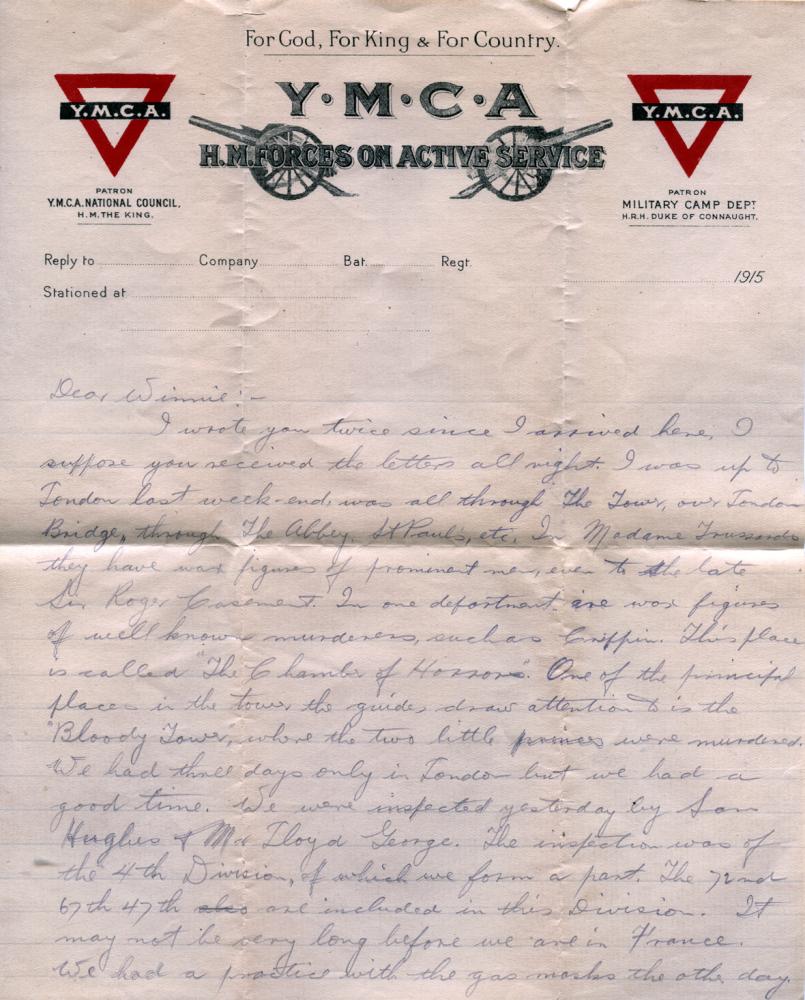 For God, For King & For Country.
Y·M·C·A
H.M.FORCES ON ACTIVE SERVICE
Y.M.C.A.
PATRON
Y.M.C.A. NATIONAL COUNCIL.
H.M. THE KING.
Y.M.C.A.
PATRON
MILITARY CAMP DEPT
H.R.H. DUKE OF CONNAUGHT.
Reply to Company Bat. Regt.
1915
Stationed at
Dear Winnie:-
I wrote you twice since I arrived here, I
suppose you received the letters all right. I was up to
London last week-end, was all through The Tower, over London
Bridge, through The Abbey, St Paul's, etc. In Madame Trussards
they have wax figures of prominent men, even to the late
Sir Roger Casement. In one department are wax figures
of well known murderers, such as Crippin. This place
is called "The Chamber of Horrors". One of the principal
places in the tower the guides draw attention to is the
"Bloody Tower, where the two little princes were murdered.
We had three days only in London but we had a
good time. We were inspected yesterday by Sam
Hughes & Mr Lloyd George. The inspection was of
the 4th Division, of which we form a part. The 72nd
67th 47th also are included in this Division. It
may not be very long before we are in France.
We had a practice with the gas masks the othe day.